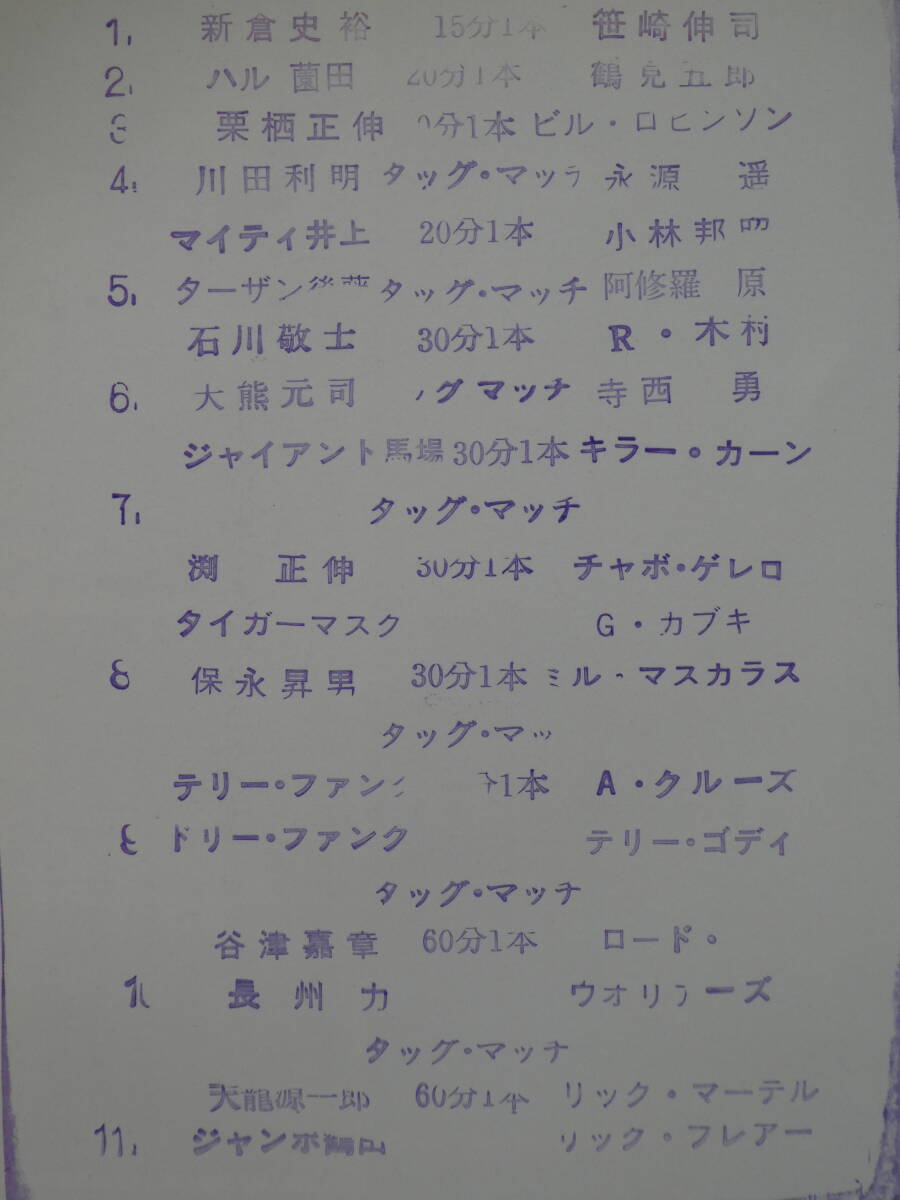 1. 新倉史裕 15分1本 笹崎伸司
2. ハル薗田 20分1本 鶴見五郎
3 栗栖正伸 0分1本 ビル・ロビンソン
4. 川田利明 タッグ・マッチ 永源 遥
マイティ井上 20分1本 小林邦昭
5. ターザン後藤 タッグ・マッチ 阿修羅 原
石川敬士 30分1本 R・木村
6. 大熊元司 グマッチ 寺西 勇
ジャイアント馬場 30分1本 キラー・カーン
7. タッグ・マッチ
渕 正伸 30分1本 チャボ・ゲレロ
タイガーマスク G・カブキ
8 保永昇男 30分1本 ミル・マスカラス
タッグ・マッ
テリー・ファンク 分1本 A・クルーズ
9 ドリー・ファンク テリー・ゴディ
タッグ・マッチ
谷津嘉章 60分1本 ロード・
1 長州力 ウオリアーズ
タッグ・マッチ
天龍源一郎 60分1本 リック・マーテル
11. ジャンボ鶴田 リック・フレアー